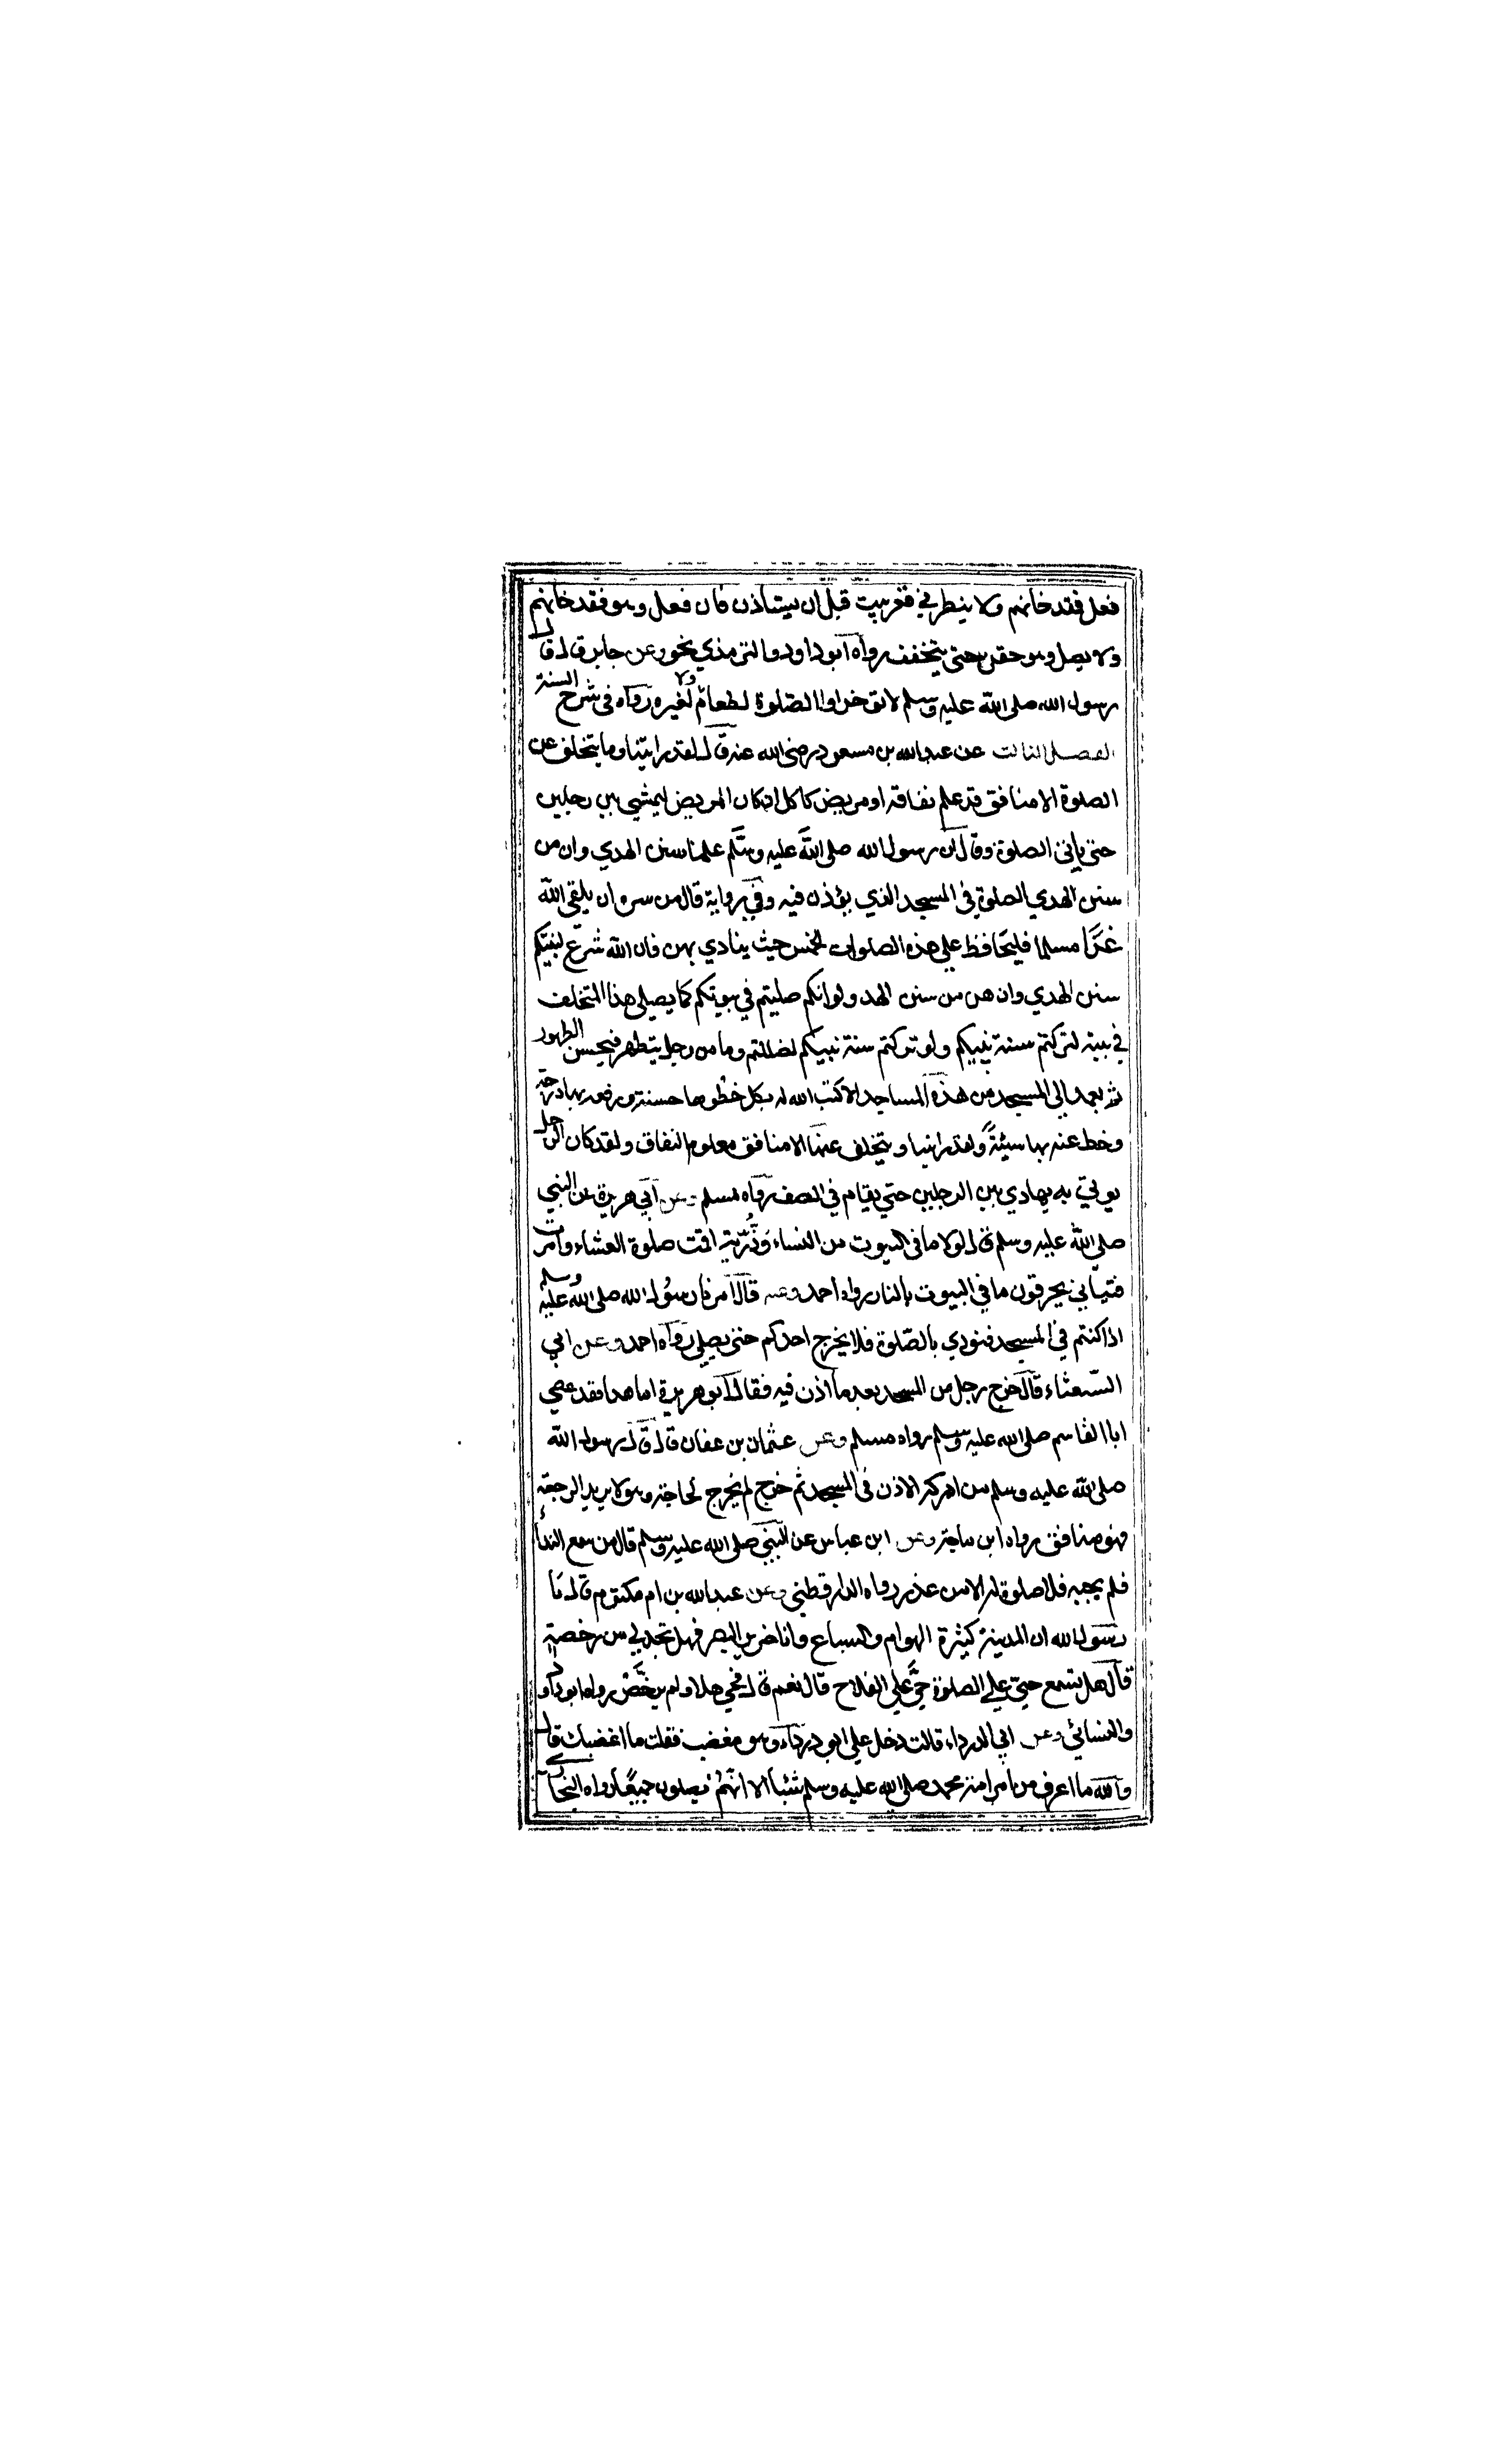 فعل فقد خانهم ولا ينظر في قعر بيت قبل ان يستاذن فان فعل وهو فقد خانهم
ولا يصل وهو حقن حتي يتخفف رواه ابو داود والترمذي نحوه وعن جابر قال قال
رسول الله صلي الله عليه وسلم لا تؤخروا الصلوة لطعام ولا لغيره رواه في شرح السنة
الفصل الثالث عن عبد الله بن مسعود رضي الله عنه قال لقد رايتنا وما يتخلف عن
الصلوة الا منافق قد علم نفاقه او مريض كان المريض ليمشي بين رجلين
حتي ياتي الصلوة وقال ان رسول الله صلي الله عليه وسلم علمنا سنن الهدي وان من
سنن الهدي الصلوة في المسجد الذي يؤذن فيه وفي رواية قال من سره ان يلقي الله
غدا مسلما فليحافظ علي هذه الصلوات الخمس حيث ينادي بهن فان الله شرع لنبيكم
سنن الهدي وان هن من سنن الهد ولو انكم صليتم في بيوتكم كما يصلي هذا المتخلف
في بيته لتركتم سنة نبيكم ولو تركتم سنة نبيكم لضللتم وما من رجل يتطهر فيحسن الطهور
ثم يعمد الي المسجد من هذه المساجد الا كتب الله له بكل خطوها حسنة ورفعه بها درجة
وحط عنه بها سيئة ولقد راينا و يتخلف عنها الا منافق معلوم النفاق ولقد كان الرجل
يوتي به يهادي بين الرجلين حتي يقام في الصف رواه مسلم وعن ابي هريرة عن النبي
صلي الله عليه وسلم قال لولا ما في البيوت من النساء وذرية اقمت صلوة العشاء وامرت
فتياني يحرقون ما في البيوت بالنار رواه احمد وعنه قال امرنا رسول الله صلي الله عليه وسلم
اذا كنتم في المسجد فنودي بالصلوة فلا يخرج احدكم حتي يصلي رواه احمد وعن ابي
الشعثاء قال خرج رجل من المسجد بعد ما اذن فيه فقال ابو هريرة اما هذا فقد عصي
ابا القاسم صلي الله عليه وسلم رواه مسلم وعن عثمان بن عفان قال قال رسول الله
صلي الله عليه وسلم من ادركه الاذن في المسجد ثم خرج لم يخرج لحاجة وهو لا يريد الرجعة
فهو منافق رواه ابن ماجة وعن ابن عباس عن النبي صلي الله عليه وسلم قال من سمع النداء
فلم يجبه فلا صلوة له الا من عذر رواه الدارقطني وعن عبد الله بن ام مكتوم قال يا
رسول الله ان المدينة كثيرة الهوام والسباع وانا ضرير البصر فهل تجد لي من رخصة
قال هل تسمع حي علي الصلوة حي علي الفلاح قال نعم قال فحي هلا ولم يرخص رواه ابو داود
والنسائي وعن ابي الدرداء قالت دخل علي ابو درداء وهو مغضب فقلت ما اغضبك قال
والله ما اعرف من امر امة محمد صلي الله عليه وسلم شيئا الا انهم يصلون جميعا رواه البخاري